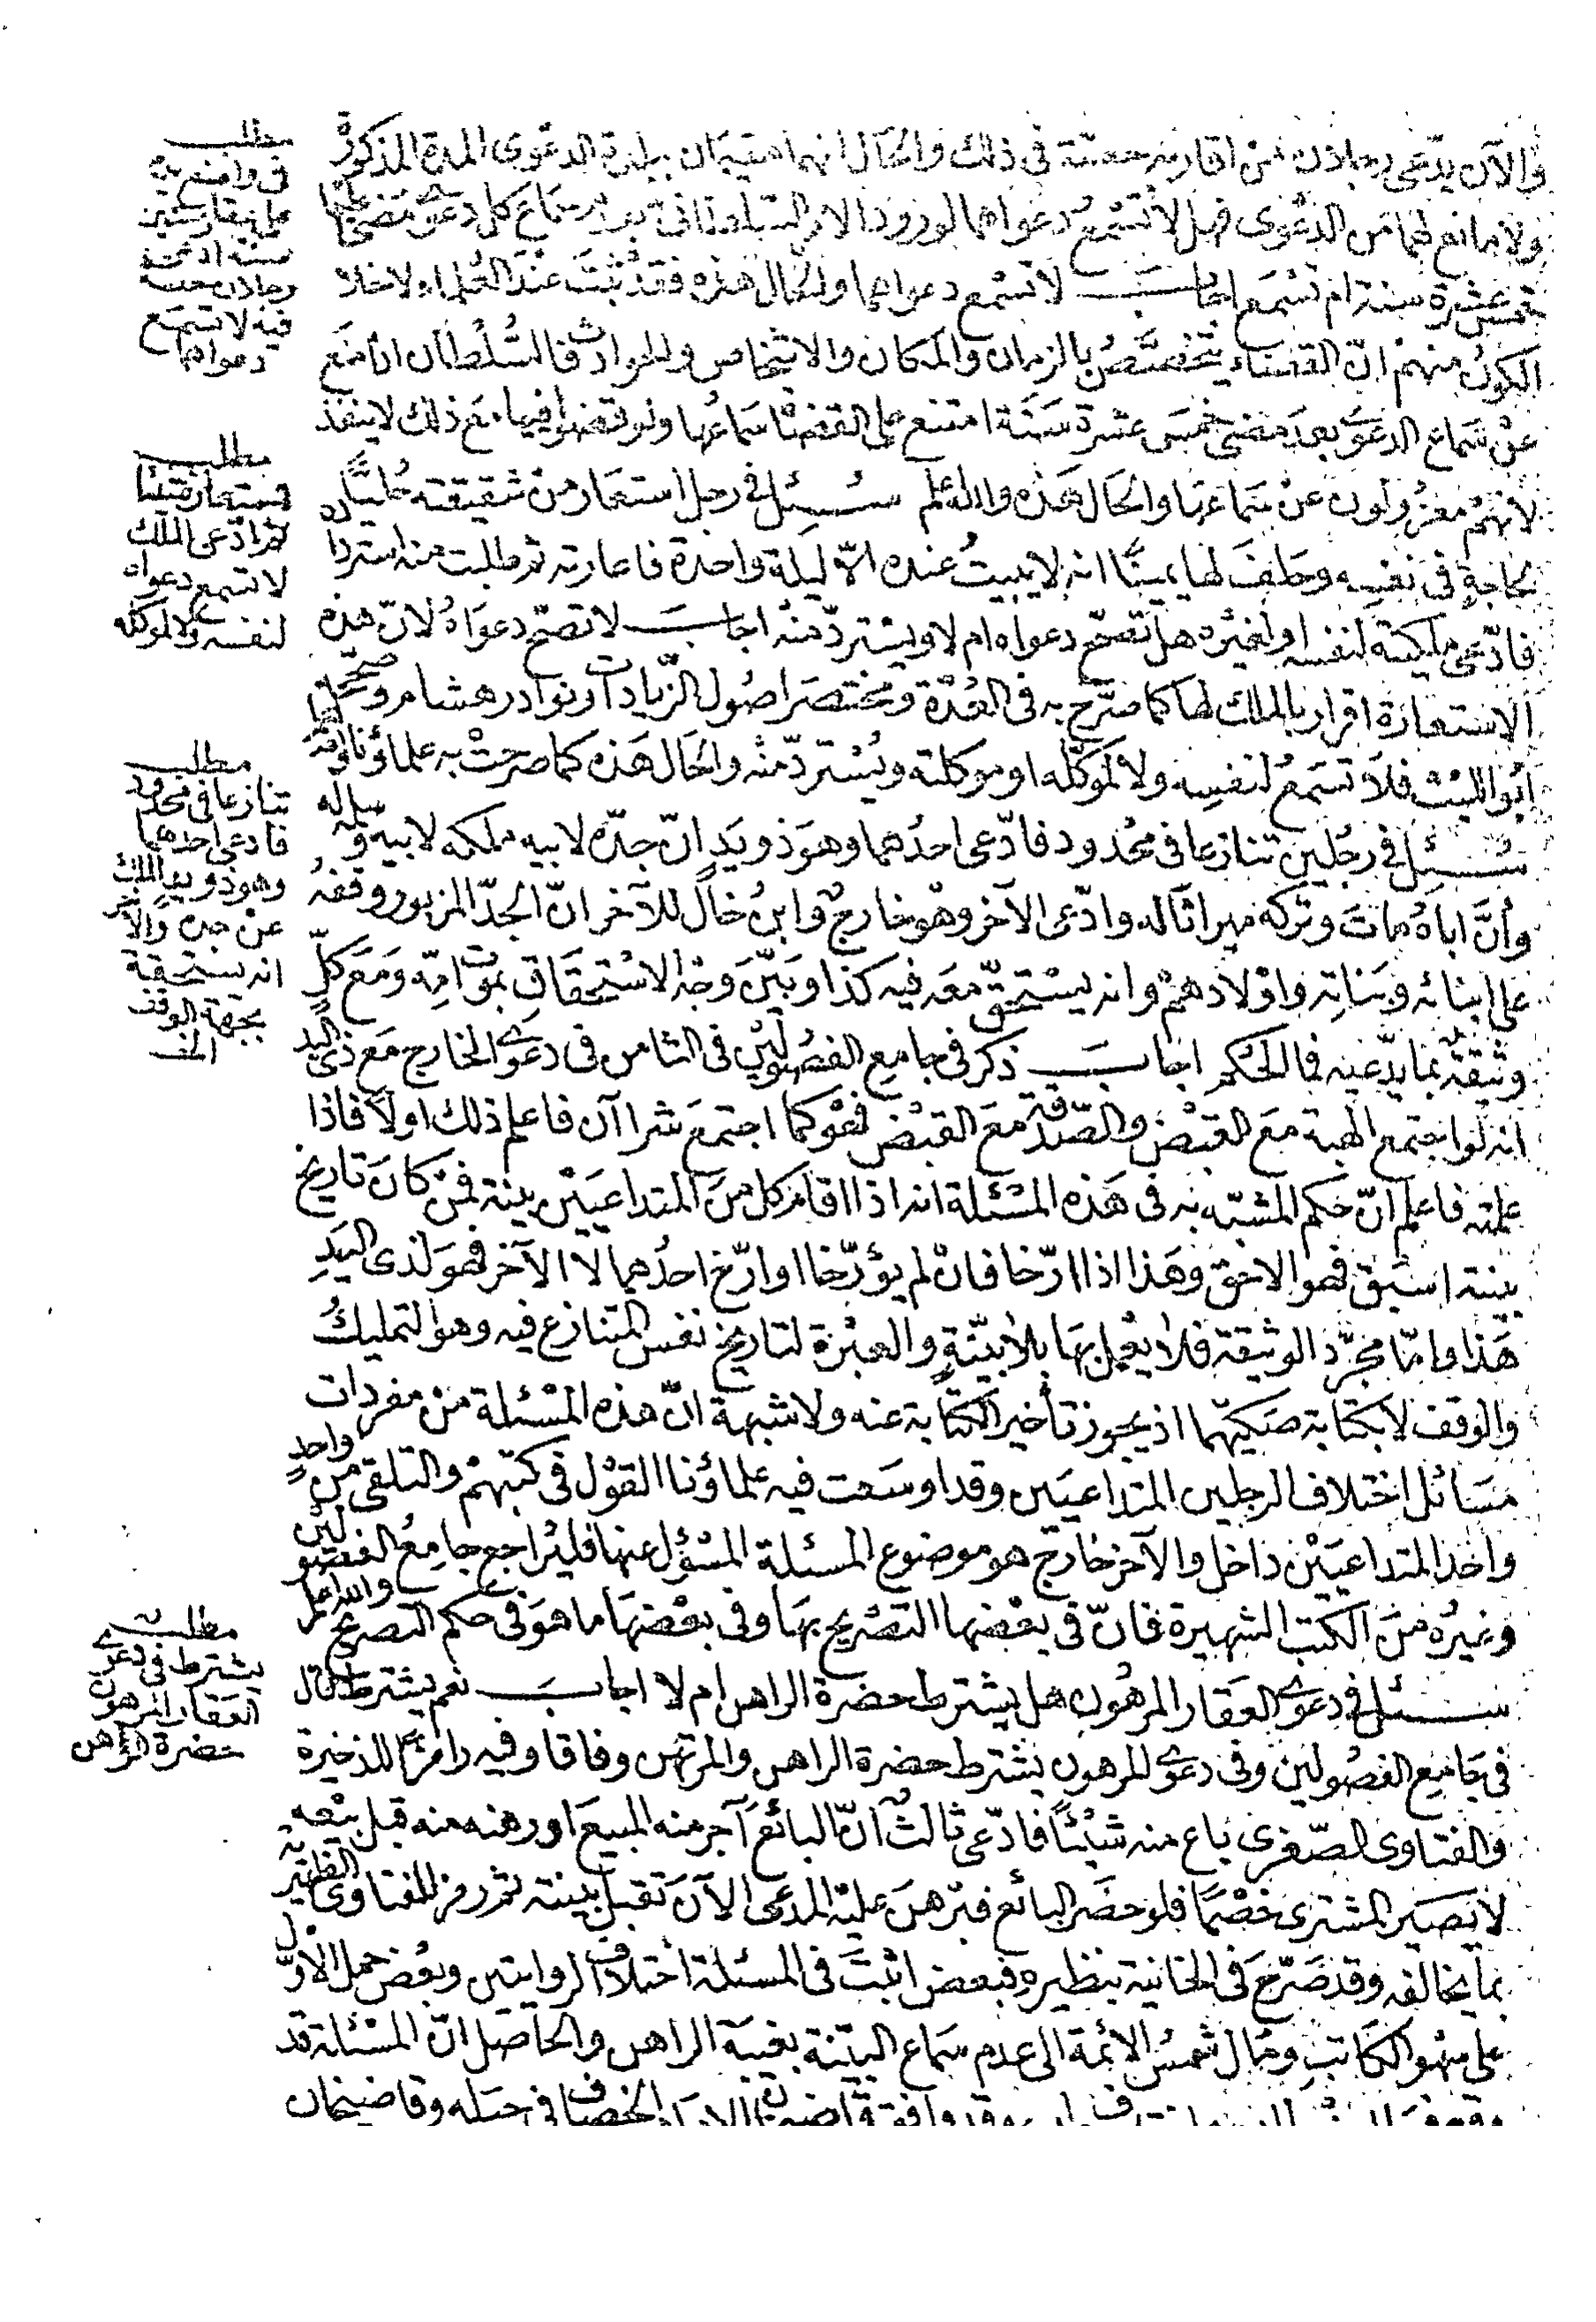 والآن يدعى رجلان من اقاربه حصته في ذلك والحال انهما مقيمان ببلدة الدعوى المدة المذكورة
ولا مانع لهما من الدعوى فهل لا تسمع دعواهما لورود الامر السلطاني بعدم سماع كل دعوى مضى عليها
خمس عشرة سنة ام تسمع اجاب لا تسمع دعواهما والحال هذه فقد ثبت عند العلماء ولا خلا
منهم انّ القضاء يتخصّص بالزمان والمكان والاشخاص والحوادث فالسلطان اذا منع
عن سماع الدعوى بعد مضى خمس عشرة سنة امتنع على القضاة سماعها ولو قضوا فيها مع ذلك لا ينفذ
لانهم معزولون عن سماعها والحال هذه والله اعلم سئل في رجل استعار من شقيقته حليًّا
لحاجة في نفسه وحلف لها يمينًا انه لا يبيت عنده الا ليلة واحدة فاعارته ثم طلبت منه استرداده
فادّعى ملكيته لنفسه او لغيره هل تصحّ دعواه ام لا ويستردّ منه اجاب لا تصحّ دعواه لانّ هذه
الاستعارة اقرار بالملك لها كما صرّح به في العدّة ومختصر اصول الزيادات ونوادر هشام وصحّحه
ابو الليث فلا تسمع لنفسه ولا لموكّله او موكلته ويستردّ منه والحال هذه كما صرحت به علماؤنا والله اعلم
سئل في رجلين تنازعا في محدود فادّعى احدهما وهو ذو يد انّ جدّه لابيه ملكه لابيه وسلمه له
وأنّ اباه مات وتركه ميراثا له وادّعى الآخر وهو خارج وابن خال للآخر انّ الجدّ المزبور وقفه
على ابنائه وبناته واولادهم وانه يستحقّ معه فيه كذا وبيّن وجه الاستحقاق بموت امّه ومع كلّ
وثيقة بما يدّعيه فما الحكم اجاب ذكر في جامع الفصولين في الثامن في دعوى الخارج مع ذي اليد
انه لو اجتمع الهبة مع القبض والصدقة مع القبض فهو كما اجتمع شراآن فاعلم ذلك اولًا فاذا
علمته فاعلم انّ حكم المشبّه به في هذه المسئلة انه اذا اقام كل من المتداعيين بينة فمن كان تاريخ
بينته اسبق فهو الاحق وهذا اذا ارّخا فان لم يؤرّخا او ارّخ احدهما لا الآخر فهو لذى اليد
هذا وامّا مجرّد الوثيقة فلا يعمل بها بلا بيّنةٍ والعبرة لتاريخ نفس المتنازع فيه وهو التمليك
والوقف لا بكتابة صكيهما اذ يجوز تأخير الكتابة عنه ولا شبهة انّ هذه المسئلة من مفردات
مسائل اختلاف الرجلين المتداعيين وقد اوسعت فيه علماؤنا القول في كتبهم والتلقى من واحد
واحد المتداعيين داخل والآخر خارج هو موضوع المسئلة المسؤل عنها فليراجع جامع الفصولين
وغيره من الكتب الشهيرة فانّ في بعضها التصريح بها وفي بعضها ما هو في حكم التصريح والله اعلم
سئل في دعوى العقار المرهون هل يشترط حضرة الراهن ام لا اجاب نعم يشترط قال
في جامع الفصولين وفي دعوى المرهون يشترط حضرة الراهن والمرتهن وفاقا وفيه رامزًا للذخيرة
والفتاوى الصغرى باع منه شيئًا فادّعى ثالث انّ البائع آجر منه المبيع او رهنه منه قبل بيعه
لا يصير المشترى خصمًا فلو حضر البائع فبرهن عليه المدعى الآن تقبل بينته ثم رمز للفتاوى الظهيرية
بما يخالفه وقد صرّح في الخانية بنظيره فبعض اثبت في المسئلة اختلاف الروايتين وبعض حمل الاوّل
على سهو الكاتب ومال شمس الائمة الى عدم سماع البيّنة بغيبة الراهن والحاصل انّ المسئلة قد
الخصاف في حيله وقاضيخان
مطلب
في واضع يده
على عقار ستين
سنة ادعى
رجلان حصة
فيه لا تسمع
دعواهما
مطلب
استعار شيئا
ثم ادّعى الملك
لا تسمع دعواه
لنفسه ولا لموكله
مطلب
تنازعا في محدود
فادعى احدهما
وهو ذو يد الملك
عن جده والآخر
انه يستحقه
بجهة الوقف
الخ
مطلب
يشترط في دعوى
العقار المرهون
حضرة الراهن